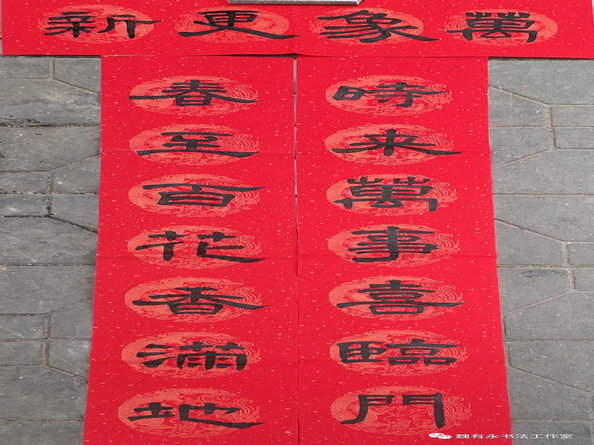 萬象更新
時來萬事喜臨門
春至百花香滿地
魏有永书法工作室